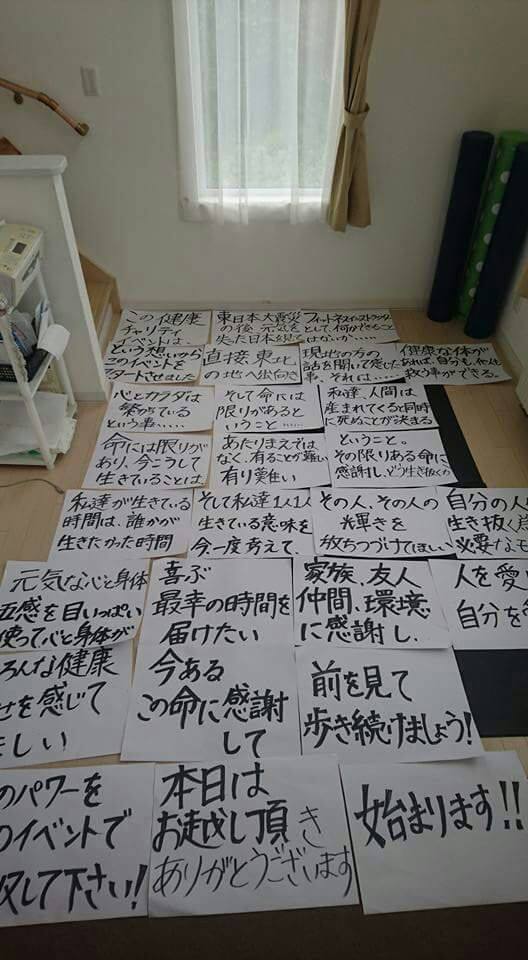 この健康
チャリティ
イベントは、
という想いから
のイベントを
タートさせました
東日本大震災
の後、元気を
失った日本経て
フィットネスインストラクター
として、何かできること
はないか……
直接、東北
の地へ出向き
現地の方の
話を聞いて感じた
事、それは……
健康な体が
あれば、自分も、他人も
救う事ができる。
心とカラダは
繋がっている
という事……
そして命には
限りがあると
いうこと……
私達、人間は
産まれてくると同時
に死ぬことが決まる
命には限りが
あり、今こうして
生きていることは
あたりまえでは
なく、有ることが難い
有り難い
ということ。
その限りある命に
感謝し、どう生き抜くか
私達が生きている
時間は、誰かが
生きたかった時間
そして私達1人1人
生きている意味を
今一度考えて、
その人、その人の
輝きを
放ちつづけてほしい
自分の人
生き抜く
必要なモ
元気な心と身体
五感を目いっぱい
使って心と身体が
喜ぶ
最幸の時間を
届けたい
家族、友人
仲間、環境
に感謝し、
人を愛
自分を
ろんな健康
せを感じて
ほしい
今ある
この命に感謝
して
前を見て
歩き続けましょう!
のパワーを
のイベントで
収して下さい!
本日は
お越し頂き
ありがとうございます
始まります!!